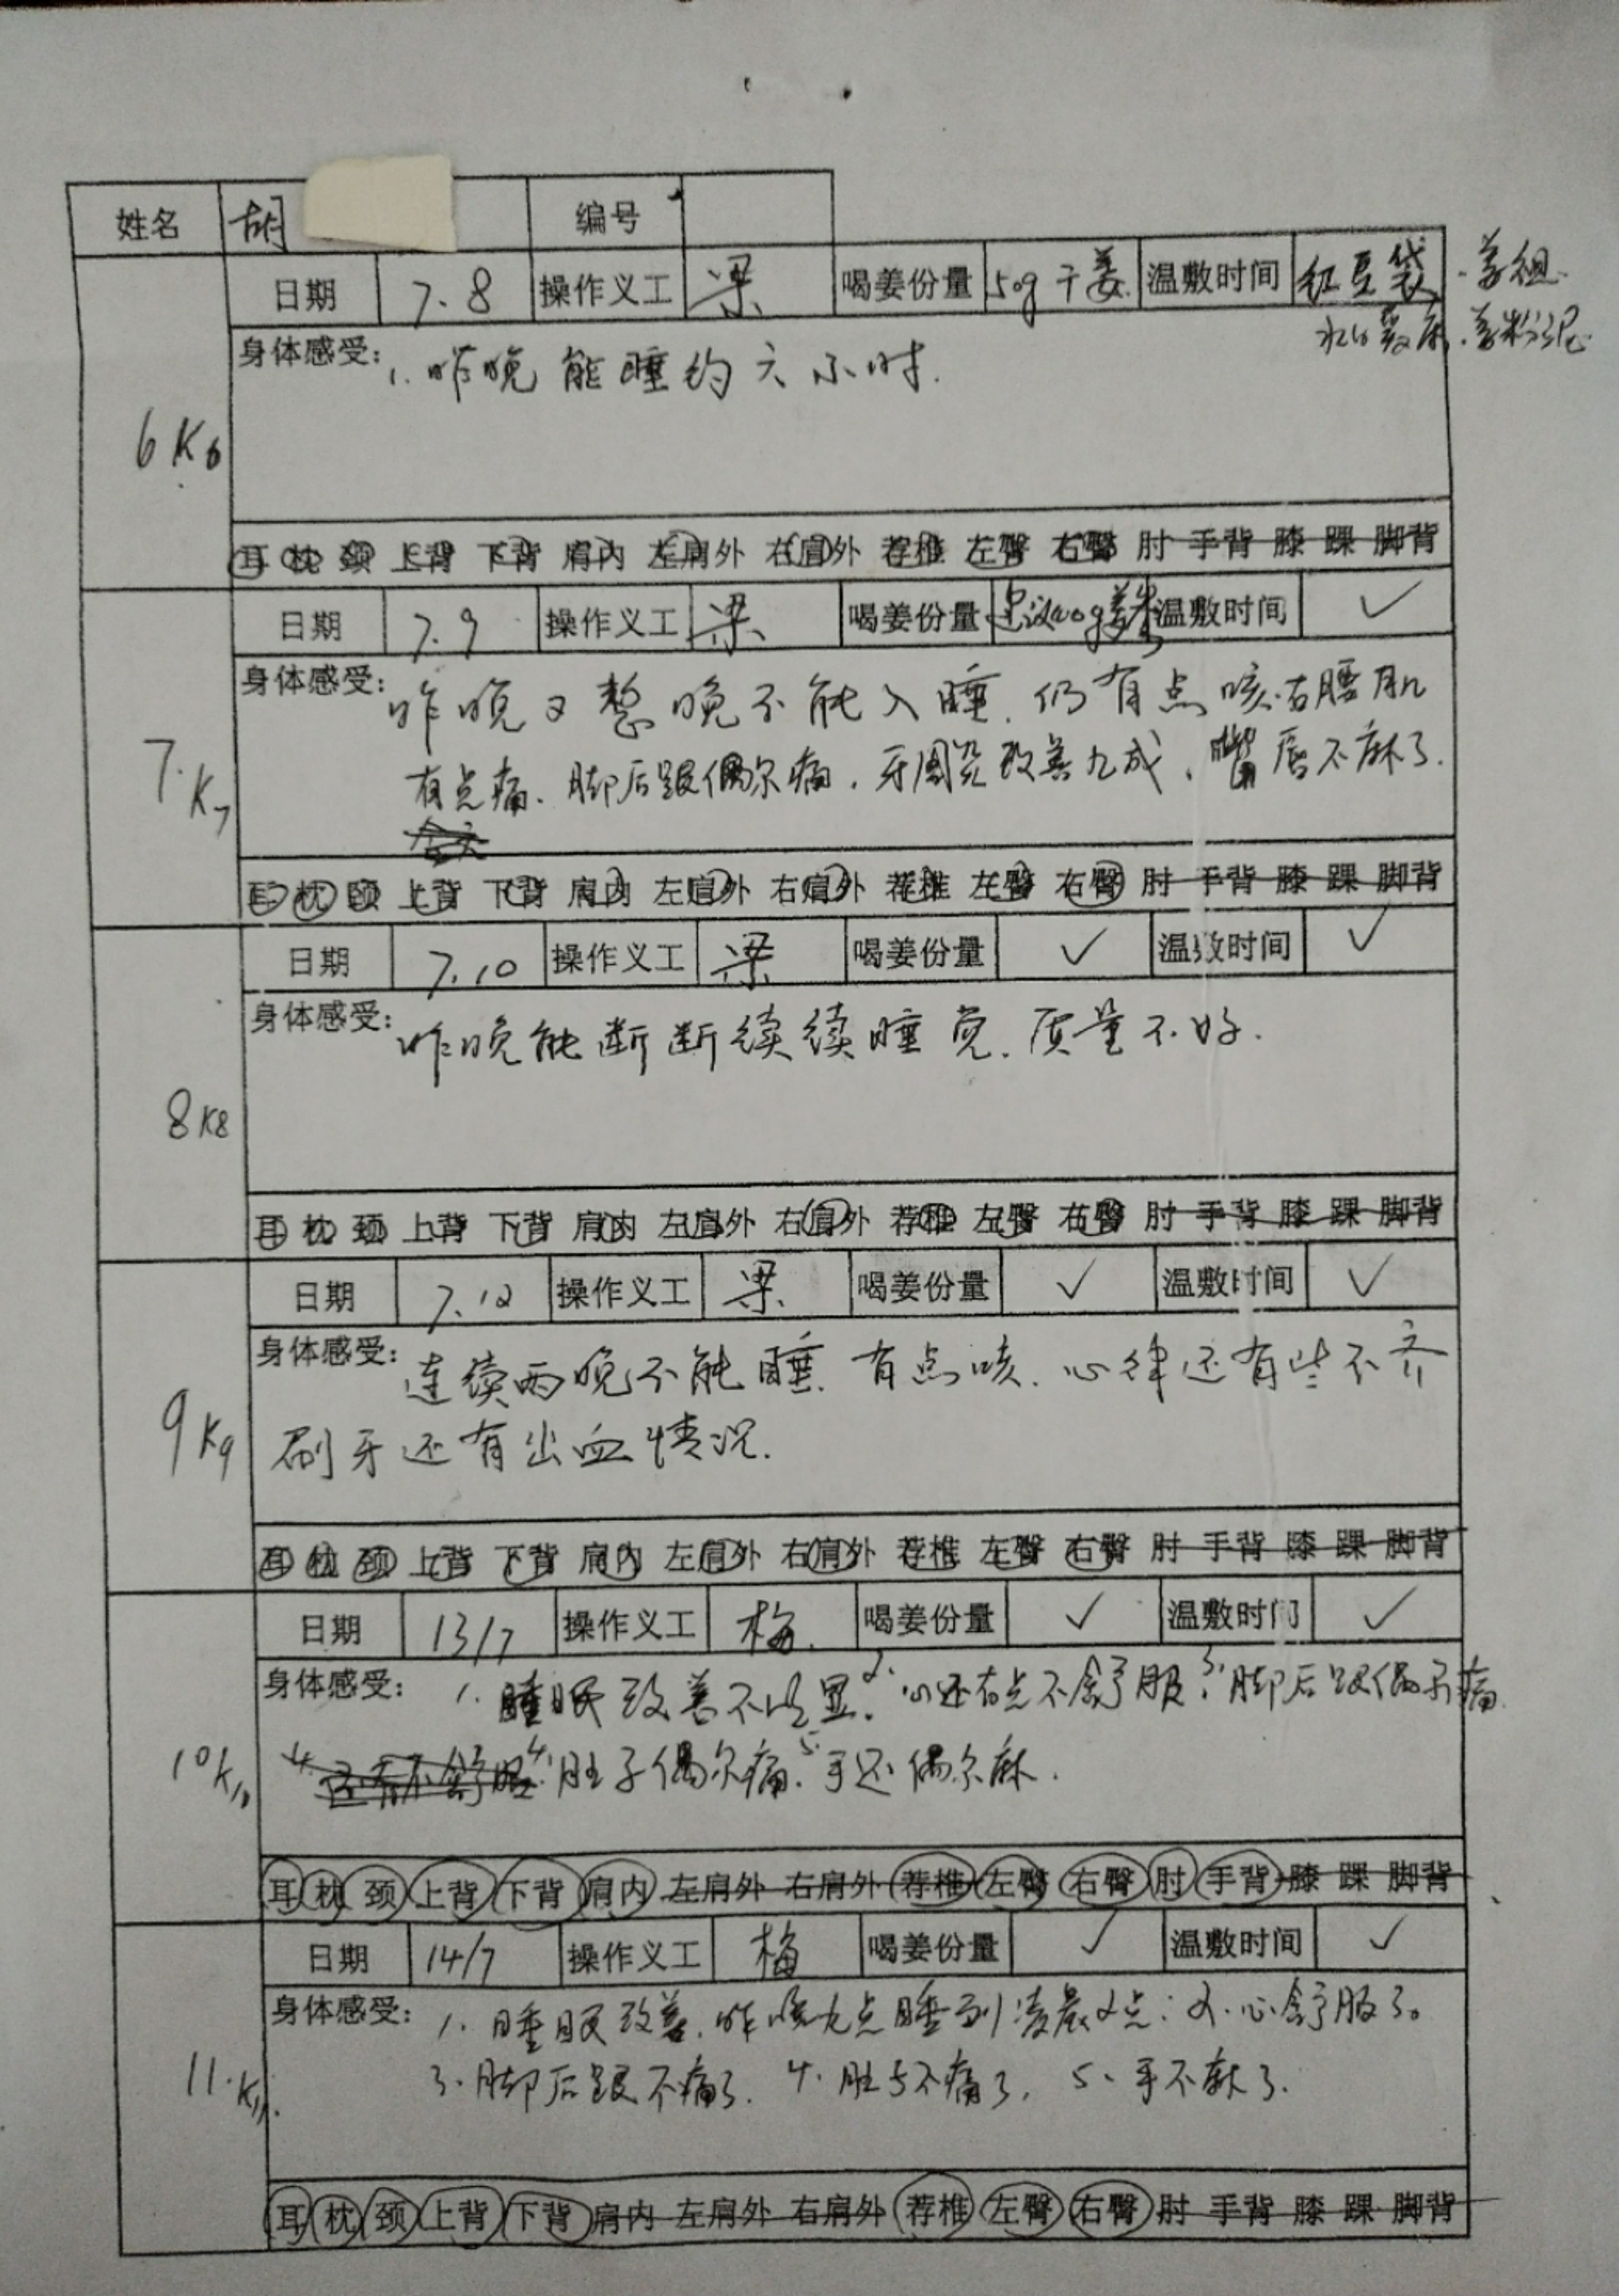 姓名 胡 编号
日期 7.8 操作义工 梁 喝姜份量 50g干姜 温敷时间 红豆袋
身体感受: 1. 昨晚能睡约六小时.
6 K6
耳 枕 颈 上背 下背 肩内 左肩外 右肩外 荐椎 左臀 右臀 肘 手背 膝 踝 脚背
日期 7.9 操作义工 梁 喝姜份量 温敷时间 ✓
身体感受: 昨晚又整晚不能入睡. 仍有点咳.右腰肌
有点痛. 脚后跟偶尔痛. 牙周炎改善九成, 嘴唇不麻了.
7. K7
耳 枕 颈 上背 下背 肩内 左肩外 右肩外 荐椎 左臀 右臀 肘 手背 膝 踝 脚背
日期 7.10 操作义工 梁 喝姜份量 ✓ 温敷时间 ✓
身体感受: 昨晚能断断续续睡觉. 质量不好.
8 K8
耳 枕 颈 上背 下背 肩内 左肩外 右肩外 荐椎 左臀 右臀 肘 手背 膝 踝 脚背
日期 7.12 操作义工 梁 喝姜份量 ✓ 温敷时间 ✓
身体感受: 连续两晚不能睡. 有点咳. 心律还有些不齐
刷牙还有出血情况.
9 K9
耳 枕 颈 上背 下背 肩内 左肩外 右肩外 荐椎 左臀 右臀 肘 手背 膝 踝 脚背
日期 13/7 操作义工 梅. 喝姜份量 ✓ 温敷时间 ✓
身体感受: 1. 睡眠改善不明显. 2. 心还有点不舒服. 3. 脚后跟偶尔痛
4. 肚子偶尔痛. 5. 手还偶尔麻.
10 K10
耳 枕 颈 上背 下背 肩内 左肩外 右肩外 荐椎 左臀 右臀 肘 手背 膝 踝 脚背
日期 14/7 操作义工 梅 喝姜份量 ✓ 温敷时间 ✓
身体感受: 1. 睡眠改善. 昨晚九点睡到凌晨2点; 2. 心舒服了。
3. 脚后跟不痛了. 4. 肚子不痛了. 5. 手不麻了.
11. K11.
耳 枕 颈 上背 下背 肩内 左肩外 右肩外 荐椎 左臀 右臀 肘 手背 膝 踝 脚背